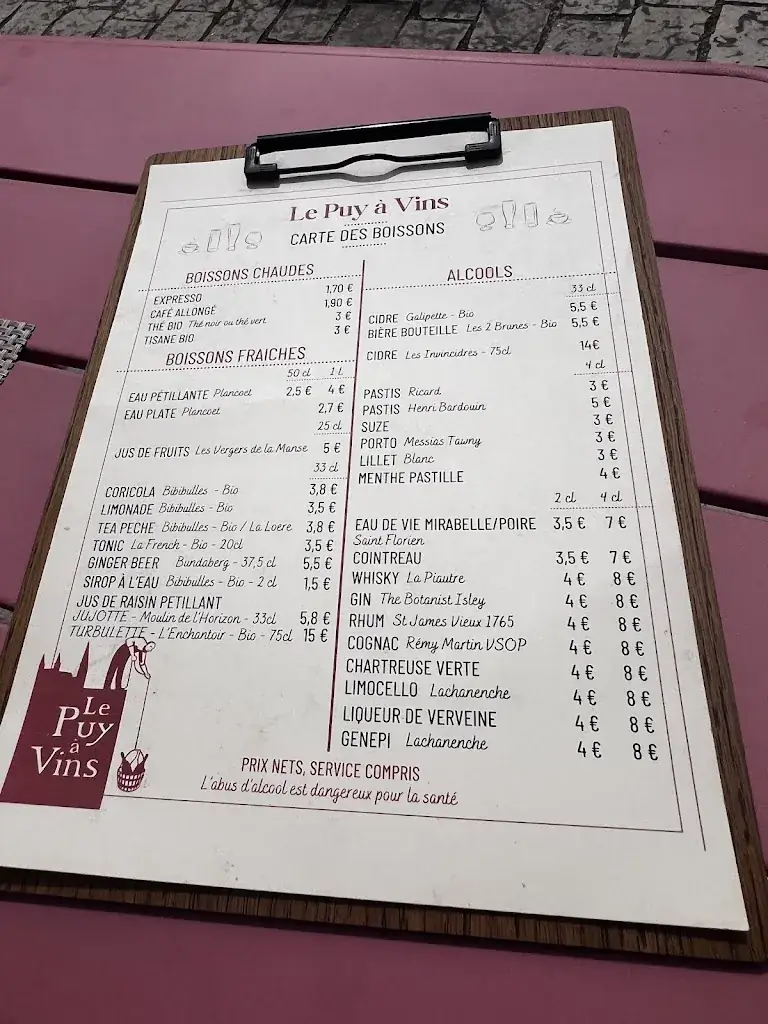 Le Puy à Vins
CARTE DES BOISSONS
BOISSONS CHAUDES
EXPRESSO 1,70 €
CAFÉ ALLONGÉ 1,90 €
THÉ BIO Thé noir ou thé vert 3 €
TISANE BIO 3 €
BOISSONS FRAICHES
50 cl 1 L
EAU PÉTILLANTE Plancoet 2,5 € 4 €
EAU PLATE Plancoet 2,7 €
25 cl
JUS DE FRUITS Les Vergers de la Manse 5 €
33 cl
CORICOLA Bibibulles - Bio 3,8 €
LIMONADE Bibibulles - Bio 3,5 €
TEA PECHE Bibibulles - Bio / La Loere 3,8 €
TONIC La French - Bio - 20cl 3,5 €
GINGER BEER Bundaberg - 37,5 cl 5,5 €
SIROP À L'EAU Bibibulles - Bio - 2 cl 1,5 €
JUS DE RAISIN PETILLANT
JUJOTTE - Moulin de l'Horizon - 33cl 5,8 €
TURBULETTE - L'Enchantoir - Bio - 75cl 15 €
ALCOOLS
33 cl
CIDRE Galipette - Bio 5,5 €
BIÈRE BOUTEILLE Les 2 Brunes - Bio 5,5 €
CIDRE Les Invincidres - 75cl 14€
4 cl
PASTIS Ricard 3 €
PASTIS Henri Bardouin 5 €
SUZE 3 €
PORTO Messias Tawny 3 €
LILLET Blanc 3 €
MENTHE PASTILLE 4 €
2 cl 4 cl
EAU DE VIE MIRABELLE/POIRE 3,5 € 7 €
Saint Florien
COINTREAU 3,5 € 7 €
WHISKY La Piautre 4 € 8 €
GIN The Botanist Isley 4 € 8 €
RHUM St James Vieux 1765 4 € 8 €
COGNAC Rémy Martin VSOP 4 € 8 €
CHARTREUSE VERTE 4 € 8 €
LIMOCELLO Lachanenche 4 € 8 €
LIQUEUR DE VERVEINE 4 € 8 €
GENEPI Lachanenche 4 € 8 €
Le
Puy
à
Vins
PRIX NETS, SERVICE COMPRIS
L'abus d'alcool est dangereux pour la santé